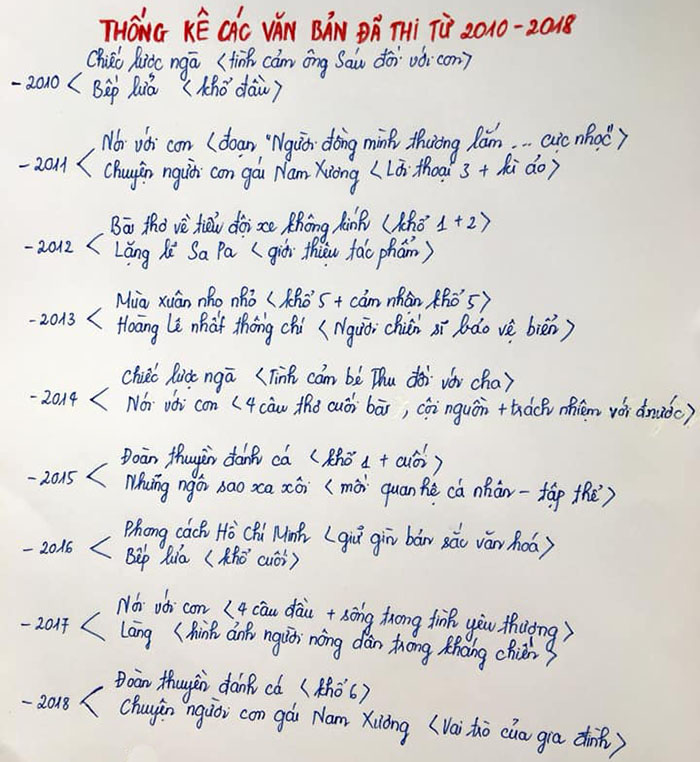 THỐNG KÊ CÁC VĂN BẢN ĐÃ THI TỪ 2010 - 2018
Chiếc lược ngà <tình cảm ông Sáu đối với con>
- 2010 <
Bếp lửa <khổ đầu>
Nói với con <đoạn "Người đồng mình thương lắm ... cực nhọc">
- 2011 <
Chuyện người con gái Nam Xương <Lời thoại 3 + kì ảo>
Bài thơ về tiểu đội xe không kính <khổ 1 + 2>
- 2012 <
Lặng lẽ Sa Pa <giới thiệu tác phẩm>
Mùa xuân nho nhỏ <khổ 5 + cảm nhận khổ 5>
- 2013 <
Hoàng Lê nhất thống chí <Người chiến sĩ bảo vệ biển>
Chiếc lược ngà <Tình cảm bé Thu đối với cha>
- 2014 <
Nói với con <4 câu thơ cuối bài, cội nguồn + trách nhiệm với đnước>
Đoàn thuyền đánh cá <khổ 1 + cuối>
- 2015 <
Những ngôi sao xa xôi <mối quan hệ cá nhân - tập thể>
Phong cách Hồ Chí Minh <giữ gìn bản sắc văn hoá>
- 2016 <
Bếp lửa <khổ cuối>
Nói với con <4 câu đầu + sống trong tình yêu thương>
- 2017 <
Làng <hình ảnh người nông dân trong kháng chiến>
Đoàn thuyền đánh cá <khổ 6>
- 2018 <
Chuyện người con gái Nam Xương <Vai trò của gia đình>